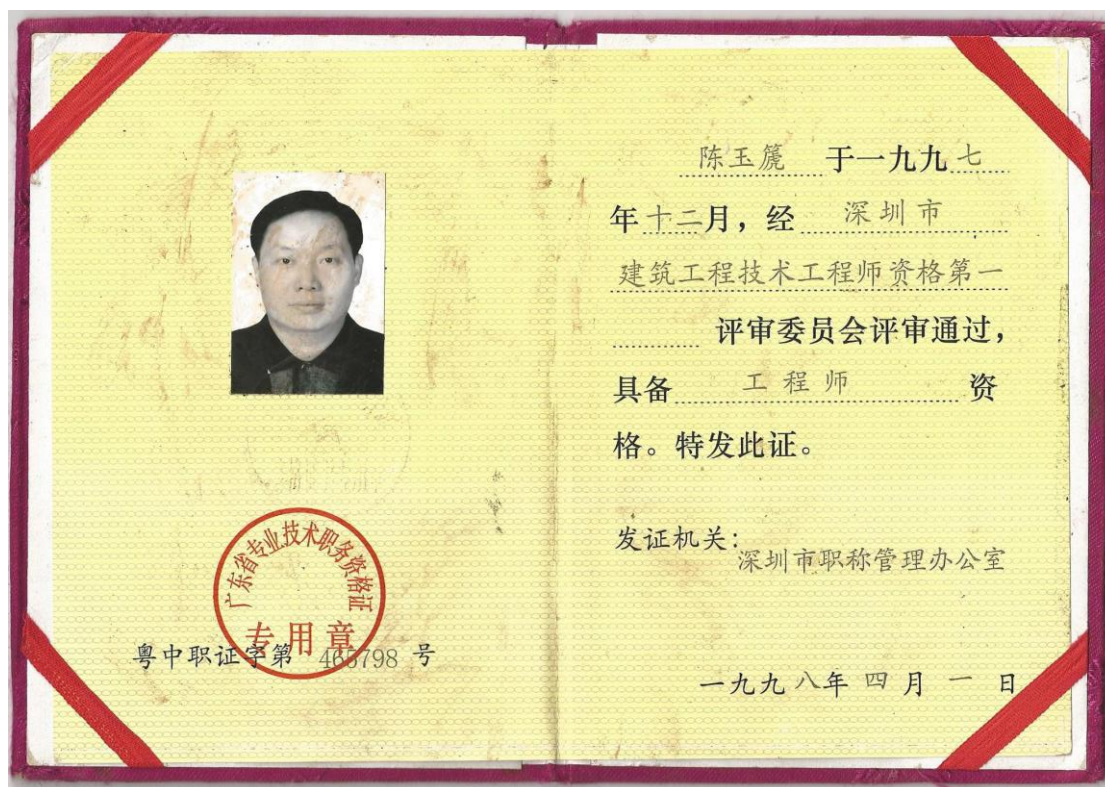 广东省专业技术职务资格证
专用章
粤中职证字第 465798 号
陈玉篪 于一九九七
年十二月，经 深圳市
建筑工程技术工程师资格第一
评审委员会评审通过，
具备 工程师 资
格。特发此证。
发证机关：
深圳市职称管理办公室
一九九八年 四 月 一 日